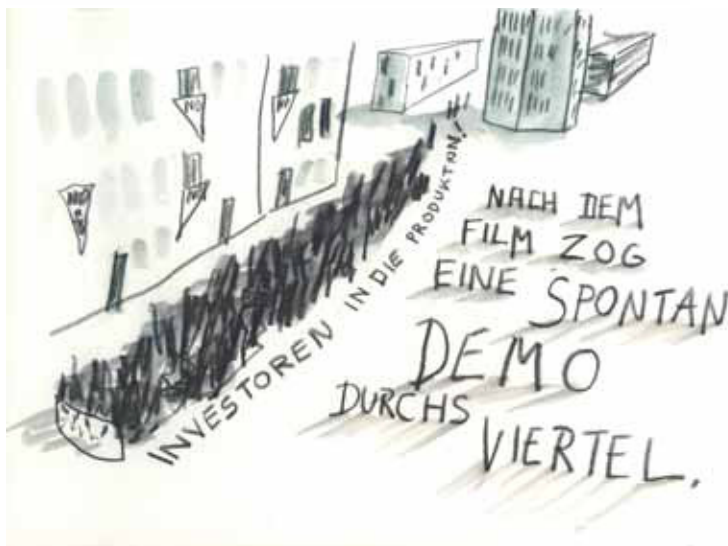 INVESTOREN IN DIE PRODUKTION!
NACH DEM
FILM ZOG
EINE SPONTAN
DEMO
DURCHS
VIERTEL.